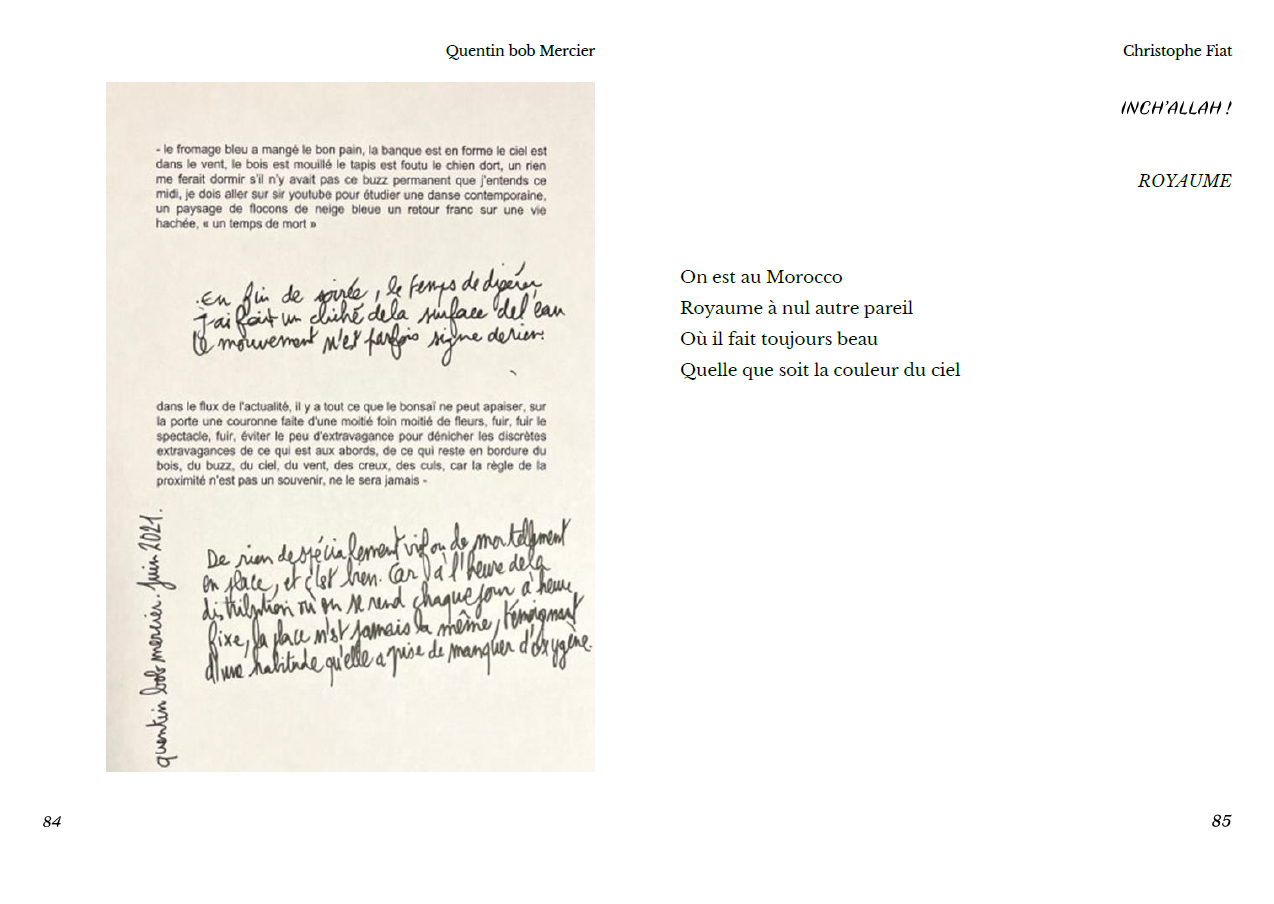 Quentin bob Mercier
- le fromage bleu a mangé le bon pain, la banque est en forme le ciel est
dans le vent, le bois est mouillé le tapis est foutu le chien dort, un rien
me ferait dormir s'il n'y avait pas ce buzz permanent que j'entends ce
midi, je dois aller sur sir youtube pour étudier une danse contemporaine,
un paysage de flocons de neige bleue un retour franc sur une vie
hachée, « un temps de mort »
. En fin de soirée, le temps de digérer,
j'ai fait un cliché de la surface de l'eau
le mouvement n'est parfois signe de rien.
dans le flux de l'actualité, il y a tout ce que le bonsaï ne peut apaiser, sur
la porte une couronne faite d'une moitié foin moitié de fleurs, fuir, fuir le
spectacle, fuir, éviter le peu d'extravagance pour dénicher les discrètes
extravagances de ce qui est aux abords, de ce qui reste en bordure du
bois, du buzz, du ciel, du vent, des creux, des culs, car la règle de la
proximité n'est pas un souvenir, ne le sera jamais -
De rien de spécialement vif ou de mortellement
en place, et c'est bien. Car à l'heure de la
distribution où on se rend chaque jour à heure
fixe, la place n'est jamais la même, témoignant
d'une habitude qu'elle a prise de manquer d'oxygène.
quentin bob mercier. Juin 2021.
84
Christophe Fiat
INCH'ALLAH !
ROYAUME
On est au Morocco
Royaume à nul autre pareil
Où il fait toujours beau
Quelle que soit la couleur du ciel
85